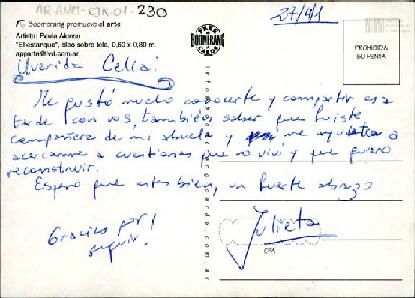 AR-ANM-CJK-01-230
27/4/1
Boomerang promueve el arte
Artista: Paula Alonso
"Ellestanque", óleo sobre tela, 0,60 x 0,80 m.
FREE
BOOMERANG
CARDS
PROHIBIDA
SU VENTA
Querida Celia:
Me gustó mucho conocerte y compartir esa
tarde con vos, también saber que fuiste
compañera de mi abuela y me ayudaste a
acercarme a cuestiones que no viví y que quiero
reconstruir.
Espero que estés bien, un fuerte abrazo
Gracias por
seguir!
Julieta
CPA